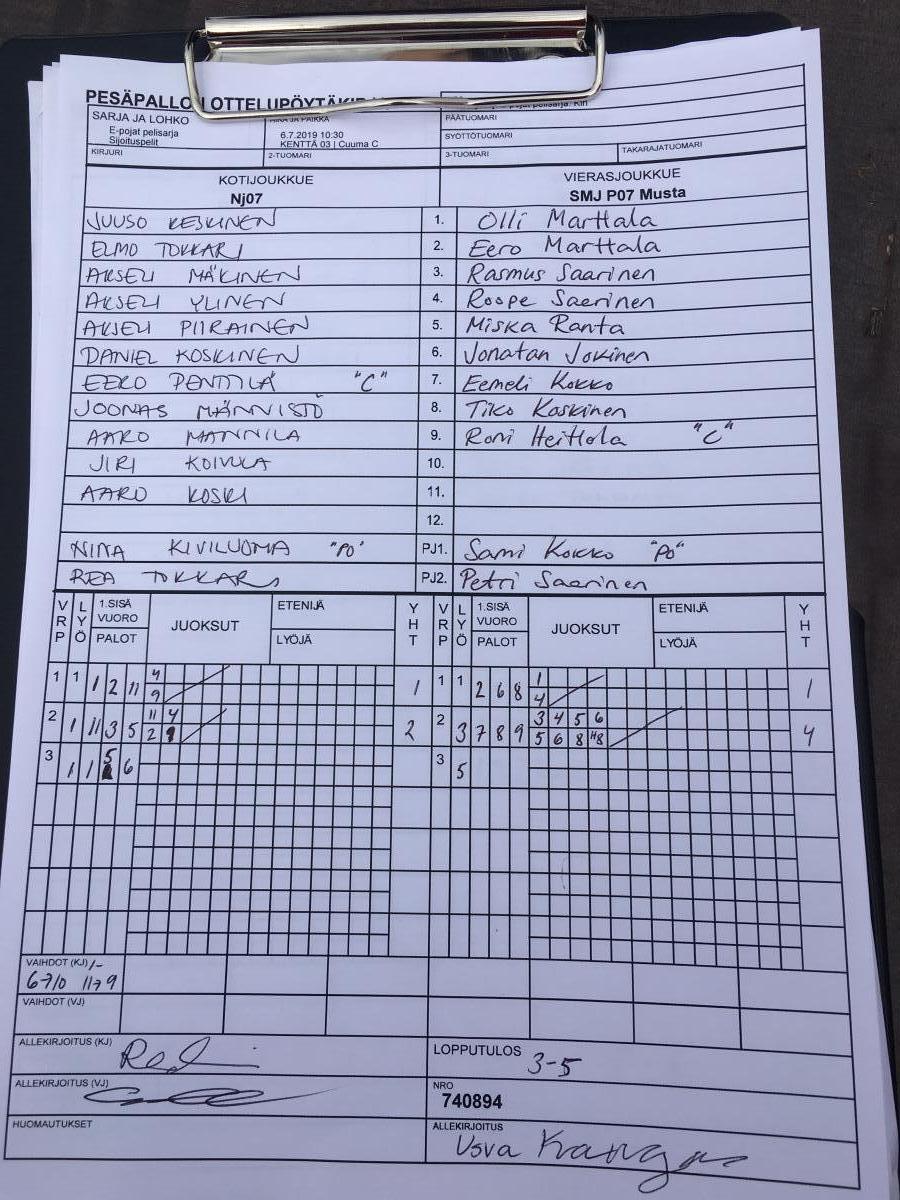 PESÄPALLON OTTELUPÖYTÄKIRJA
SARJA JA LOHKO
E-pojat pelisarja
Sijoituspelit
AIKA JA PAIKKA
6.7.2019 10:30
KENTTÄ 03 | Cuuma C
PÄÄTUOMARI
SYÖTTÖTUOMARI
KIRJURI 2-TUOMARI 3-TUOMARI TAKARAJATUOMARI
KOTIJOUKKUE VIERASJOUKKUE
Nj07 SMJ P07 Musta
JUUSO KESKINEN 1. Olli Marttala
ELMO TOKKARI 2. Eero Marttala
AKSELI MÄKINEN 3. Rasmus Saarinen
AKSELI YLINEN 4. Roope Saerinen
AKSELI PIIRAINEN 5. Miska Ranta
DANIEL KOSKINEN 6. Jonatan Jokinen
EERO PENTTILÄ "C" 7. Eemeli Kokko
JOONAS MÄNNISTÖ 8. Tiko Koskinen
AARO MANNILA 9. Roni Heittola "C"
JIRI KOIVULA 10.
AARO KOSKI 11.
12.
NINA KIVILUOMA "PO" PJ1. Sami Kokko "PO"
REA TOKKARI PJ2. Petri Saarinen
VRP LYÖ 1.SISÄ VUORO PALOT JUOKSUT ETENIJÄ LYÖJÄ YHT VRP LYÖ 1.SISÄ VUORO PALOT JUOKSUT ETENIJÄ LYÖJÄ YHT
1 1 1 2 11 4 1 1 1 2 6 8 1 1
9 4
2 1 11 3 5 11 4 2 2 3 7 8 9 3 4 5 6 4
2 9 5 6 8 H8
3 1 1 5 6 3 5
VAIHDOT (KJ)
6→10 11→9
VAIHDOT (VJ)
ALLEKIRJOITUS (KJ) LOPPUTULOS 3-5
ALLEKIRJOITUS (VJ) NRO
740894
HUOMAUTUKSET ALLEKIRJOITUS
Usva Kangas